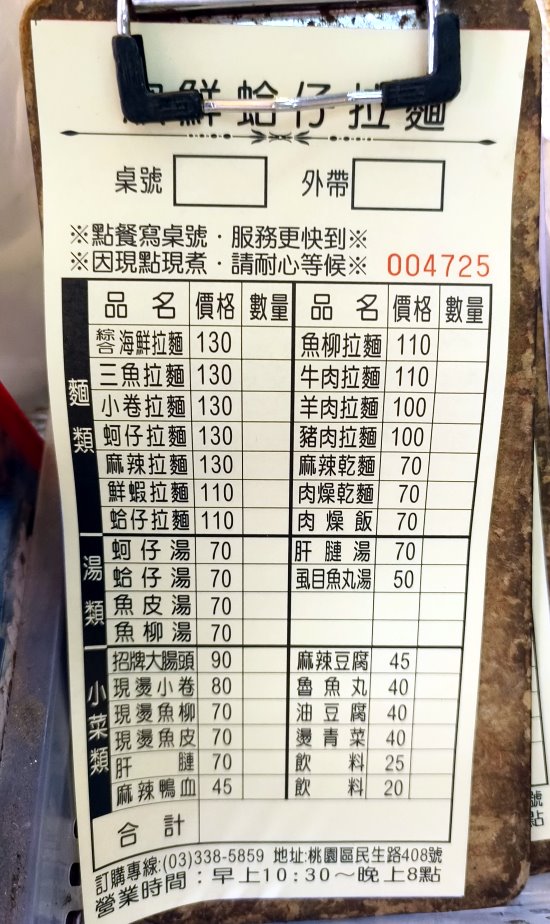 鮮蛤仔拉麵
桌號 外帶
※點餐寫桌號．服務更快到※
※因現點現煮．請耐心等候※ 004725
品名 價格 數量 品名 價格 數量
麵類
綜合海鮮拉麵 130 魚柳拉麵 110
三魚拉麵 130 牛肉拉麵 110
小卷拉麵 130 羊肉拉麵 100
蚵仔拉麵 130 豬肉拉麵 100
麻辣拉麵 130 麻辣乾麵 70
鮮蝦拉麵 110 肉燥乾麵 70
蛤仔拉麵 110 肉燥飯 70
湯類
蚵仔湯 70 肝腱湯 70
蛤仔湯 70 虱目魚丸湯 50
魚皮湯 70
魚柳湯 70
小菜類
招牌大腸頭 90 麻辣豆腐 45
現燙小卷 80 魯魚丸 40
現燙魚柳 70 油豆腐 40
現燙魚皮 70 燙青菜 40
肝腱 70 飲料 25
麻辣鴨血 45 飲料 20
合計
訂購專線:(03)338-5859 地址:桃園區民生路408號
營業時間：早上10:30～晚上8點